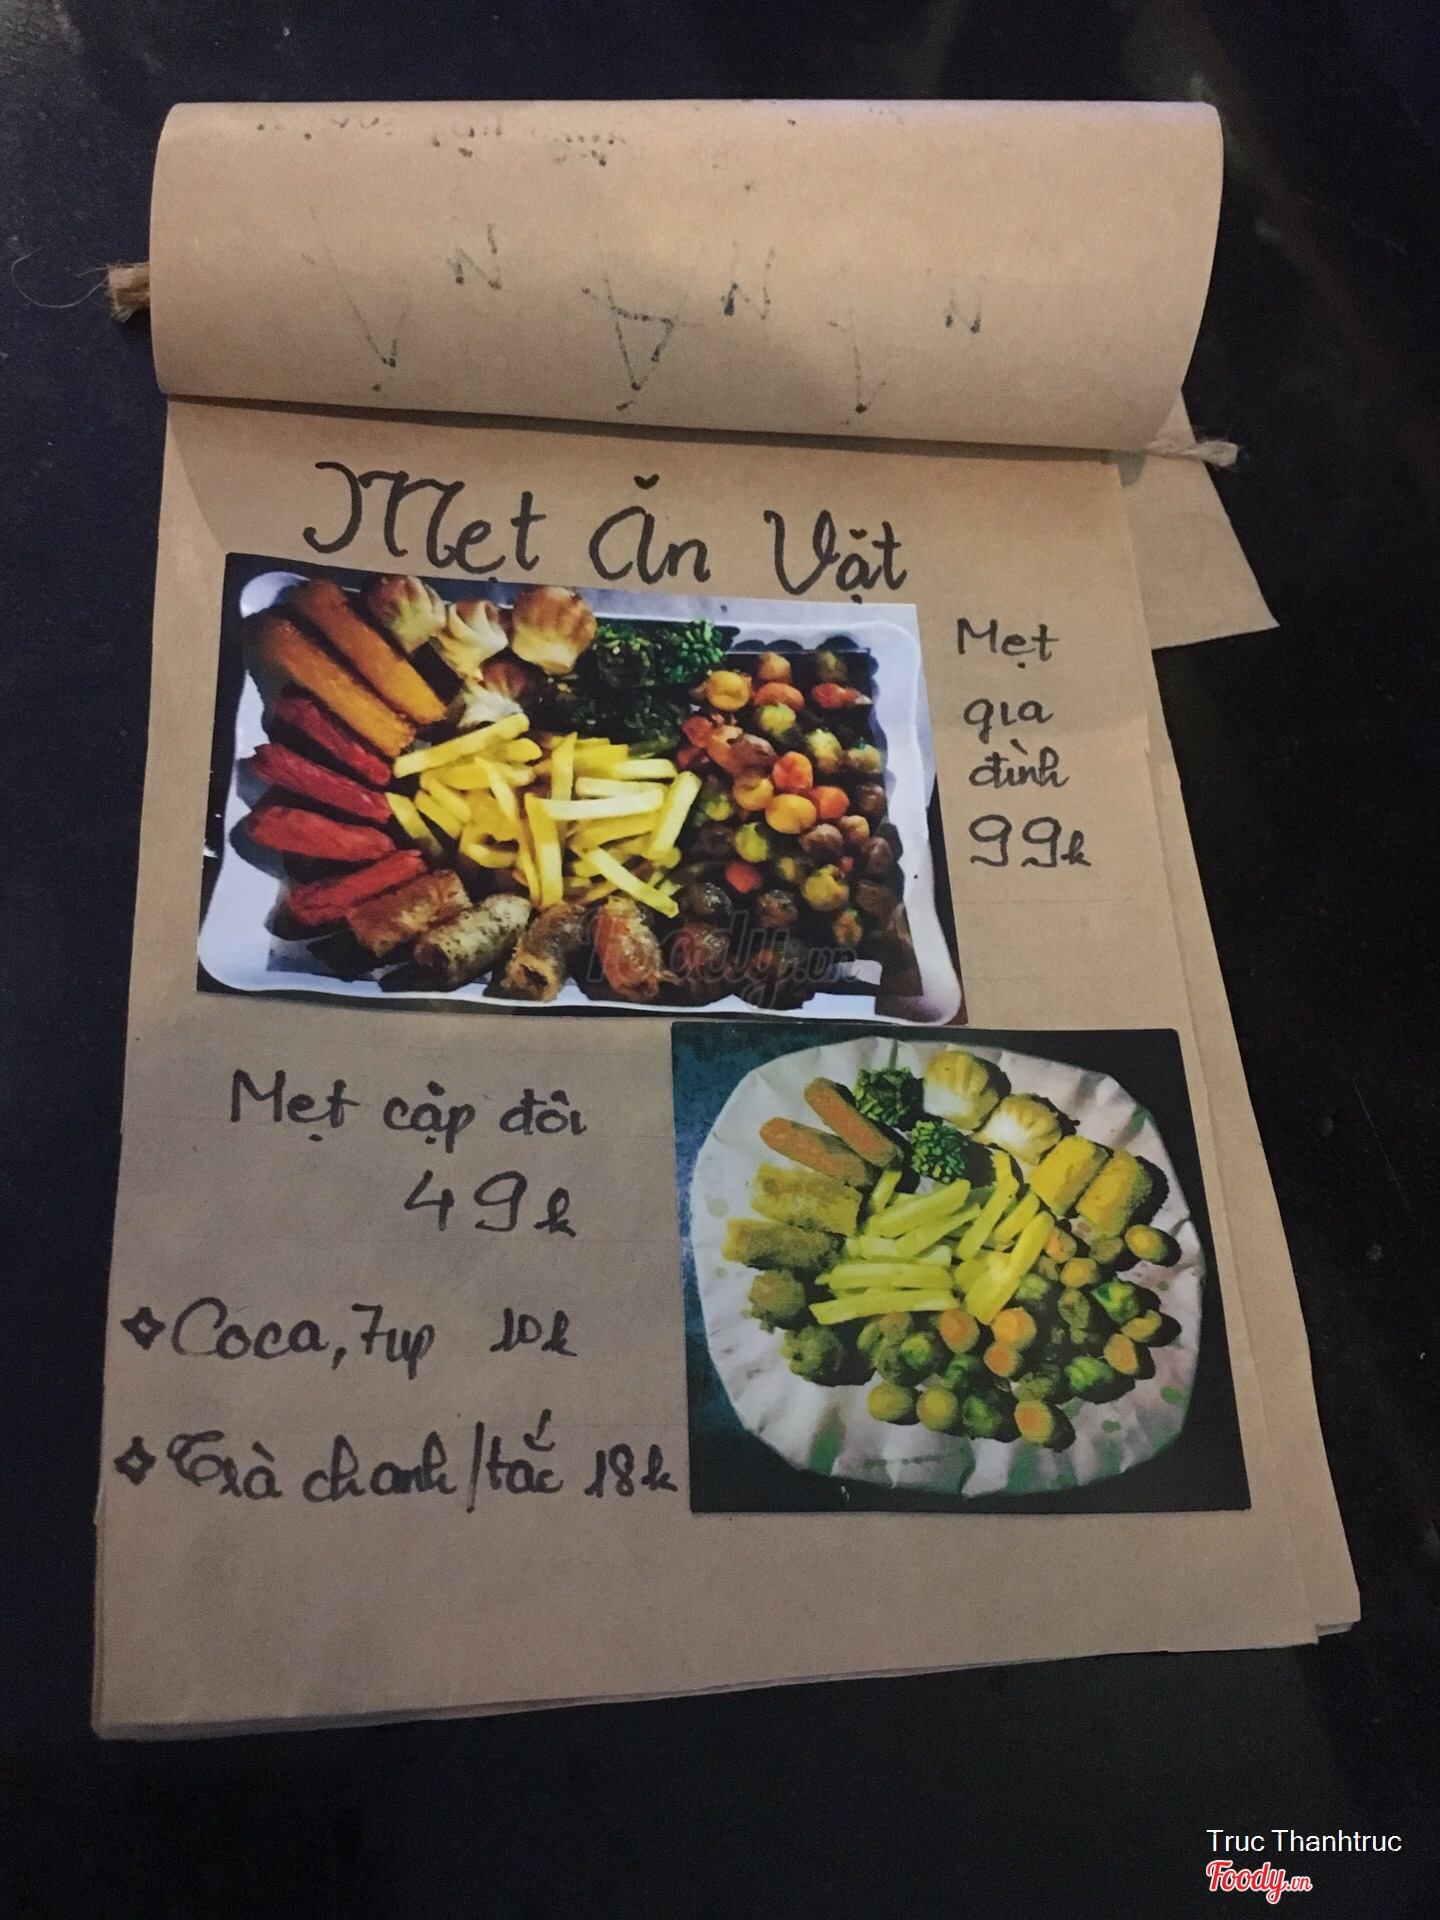 Mẹt Ăn Vặt
Mẹt
gia
đình
99k
Foody.vn
Mẹt cặp đôi
49k
Coca, 7up 10k
Trà chanh/tắc 18k
Truc Thanhtruc
Foody.vn